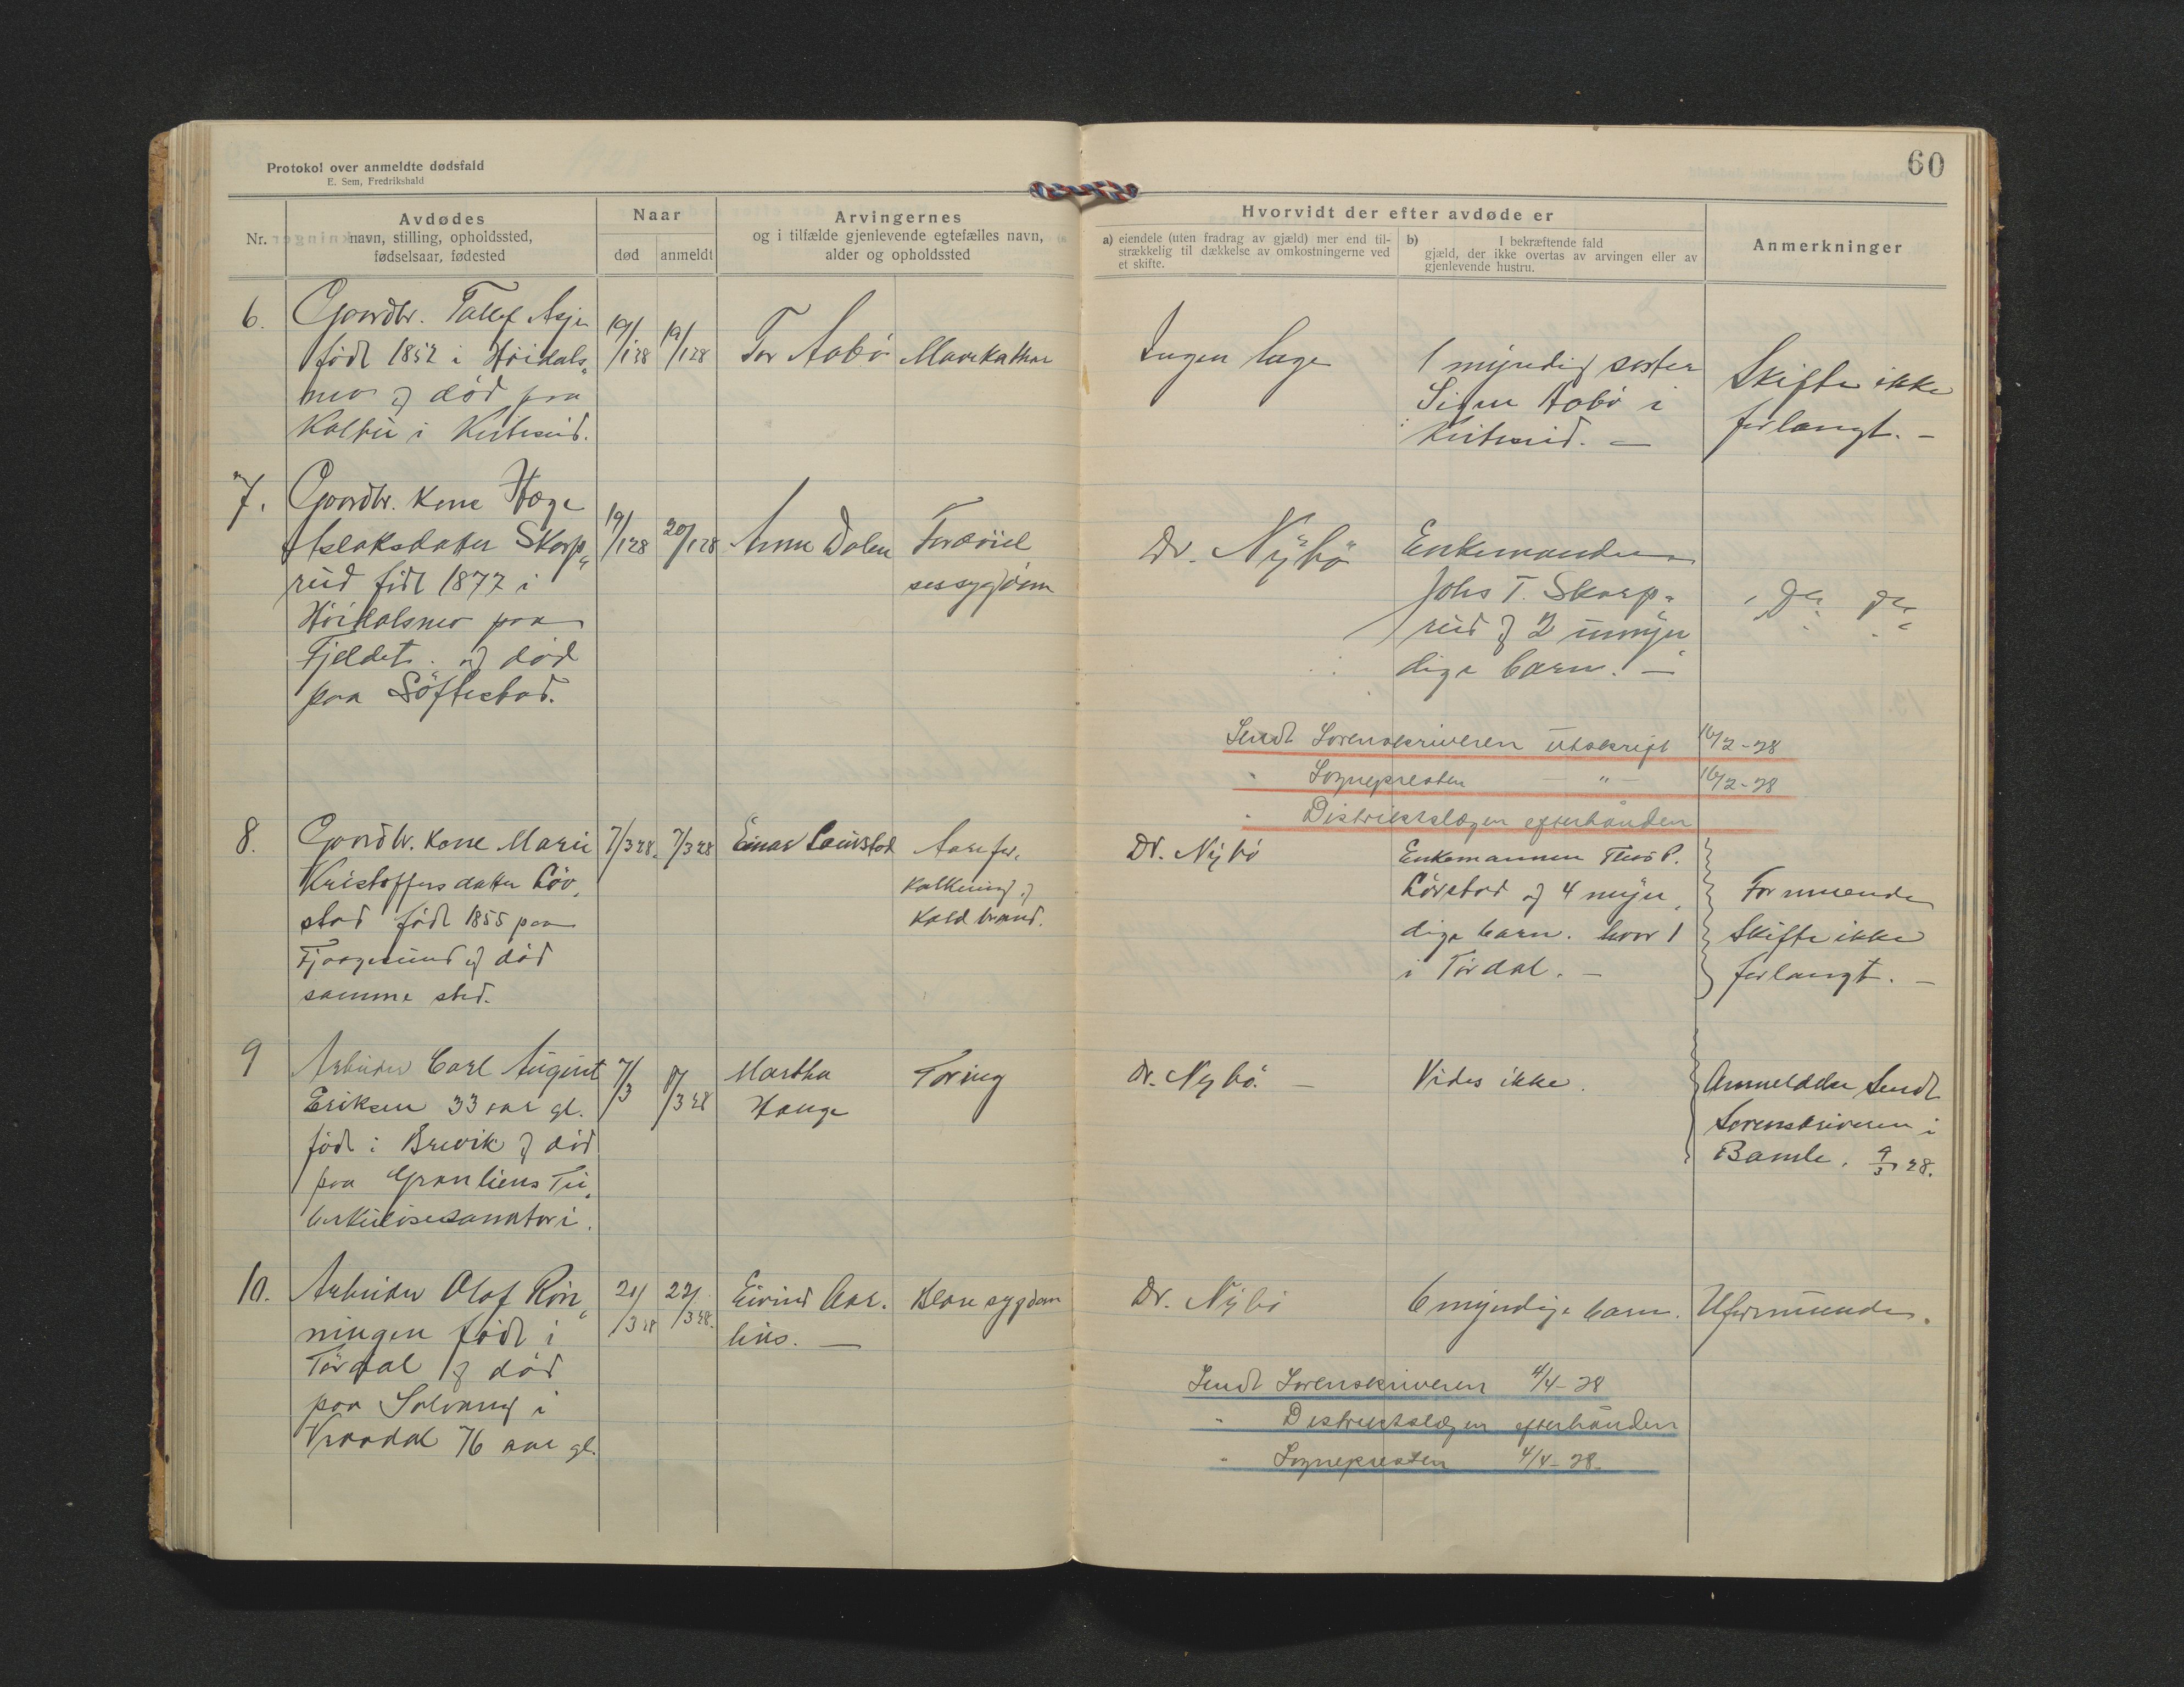 Protokol over anmeldte dødsfald
E. Sem, Fredrikshald
60
Nr.
Avdødes
navn, stilling, opholdssted,
fødselsaar, fødested
Naar
død
anmeldt
Arvingernes
og i tilfælde gjenlevende egtefælles navn,
alder og opholdssted
Hvorvidt der efter avdøde er
a) eiendele (uten fradrag av gjæld) mer end til-
strækkelig til dækkelse av omkostningerne ved
et skifte.
b) I bekræftende fald
gjæld, der ikke overtas av arvingen eller av
gjenlevende hustru.
Anmerkninger
6.
Gaardbr.
født 1852 i Höidals„
mo og död paa
i Kviteseid.
19/1 28
19/1 28
Tor Aabö
Mavekathar
Ingen læge
1 myndig søster
Signe Aabö i
Kviteseid. —
Skifte ikke
forlangt. —
7.
Gaardbr. kone Hæge
Aslaksdatter Skarp„
rud født 1877 i
Höidalsmo paa
Fjeldet. og död
paa Söftestad.
19/1 28
20/1 28
Anne Dalen
sessygdom
Dr. Nybö
Enkemanden
Johs T. Skarp„
rud og 2 umyn„
dige barn. —
Do Do
Sendt Sorenskriveren utskrift 16/2-28
" Sognepresten — " — 16/2-28
" Distriktslægen efterhånden
8.
Gaardbr. kone Marie
Kristoffersdatter Löv„
stad født 1855 paa
og død
samme sted.
7/3 28.
7/3 28
Einar Lauvstad
Aarefor„
kalkning og
Koldbrand.
Dr. Nybö
Enkemannen
Lövstad og 4 myn„
dige barn. hvor 1
i Tördal. —
Formuende
Skifte ikke
forlangt. —
9
Arbeider Carl August
Eriksen 33 aar gl.
född i Brevik og död
paa Granliens Tu„
berkulosesanatori.
7/3
8/3 28
Martha
Hauge
Tæring
Dr. Nybö. —
Vides ikke.
Anmeldelse Sendt
Sorenskriveren i
Bamle. 9/3 28.
10.
Arbeider Olaf Rön„
ningen født i
Tördal og död
paa Solvang i
Vraadal 76 aar gl.
20/3 28
22/3 28.
Eivind Aar„
hus. —
Dr. Nybö
6 myndige barn.
Uformuende.
Sendt Sorenskriveren 4/4-28
" Distriktslægen efterhånden
" Sognepresten 4/4-28.